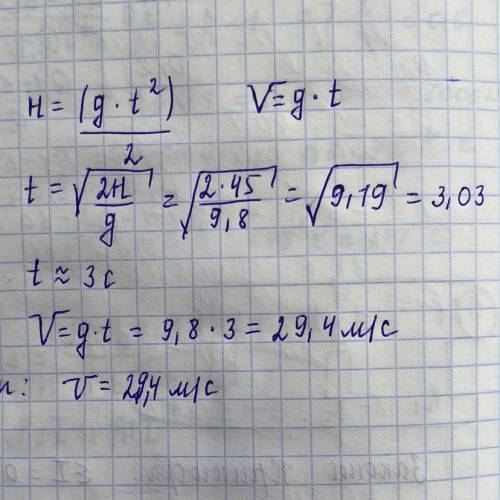 H = (g · t²) / 2 V = g · t
t = √(2H / g) = √(2 · 45 / 9,8) = √9,19 = 3,03
t ≈ 3 с
V = g · t = 9,8 · 3 = 29,4 м/с
v = 29,4 м/с